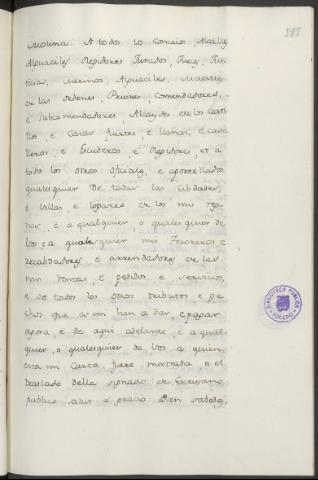 385
Molina. A todos los Concejos, Alcaldes
Alguaciles Regidores Jurados, Jueces, Jus-
ticias, merinos, Alguaciles, Maestres
de las ordenes, Priores, Comendadores,
e Subcomendadores, Alcaydes de los Casti-
llos e Casas fuertes e llanas, e cava-
lleros e Escuderos e Regidores, et a
todos los otros oficiales, e aportellados
qualesquier de todas las Cibdades,
e Villas e logares de los mis reg-
nos, e a qualquier, o qualesquier de
los e a qualesquier mis Tesoreros e
recabdadores e arrendadores de las
mis rentas e pedidos e servicios,
e de todos los otros tributos e pe-
chos que a mi han a dar e pagar
agora e de aqui adelante e a qual-
quier, o qualesquier de vos a quien
esta mi Carta fuere mostrada o el
traslado della signado de Escrivano
publico salut e gracia: Bien sabedes,
BIBLIOTECA PUBLICA
TOLEDO